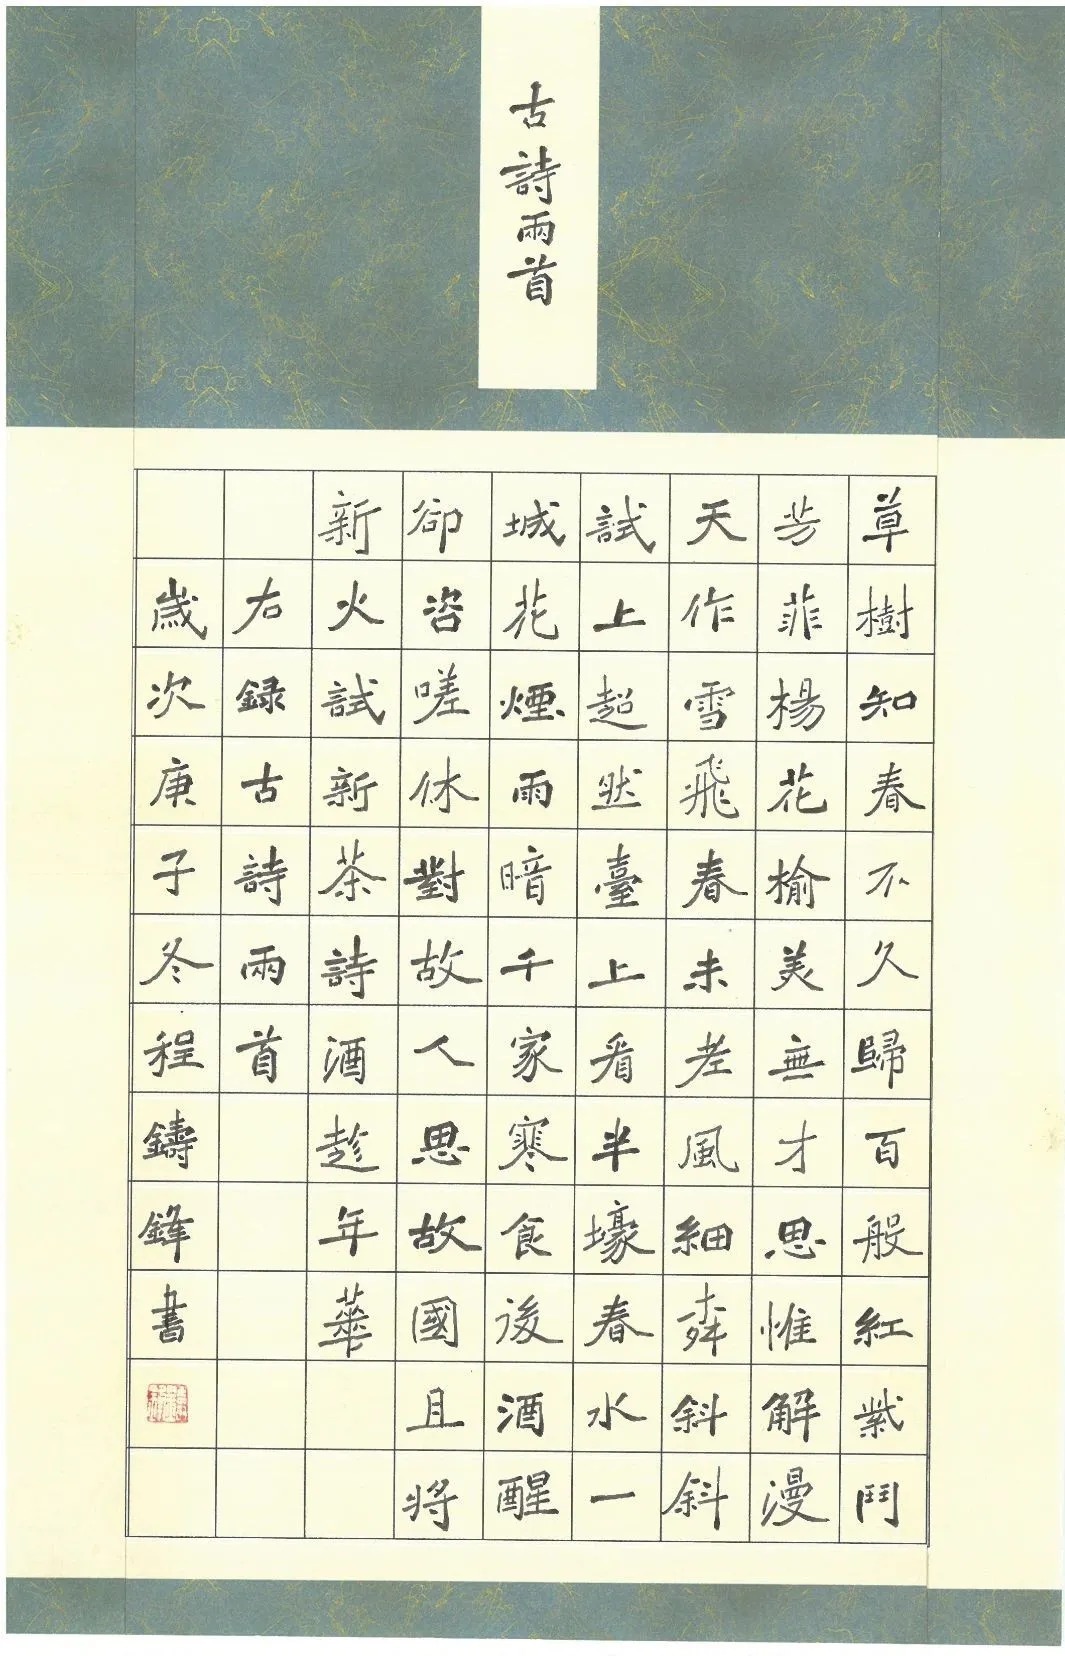 古詩兩首
草樹知春不久歸百般紅紫鬥
芳菲楊花榆美無才思惟解漫
天作雪飛春未老風細柳斜斜
試上超然臺上看半壕春水一
城花煙雨暗千家寒食後酒醒
卻咨嗟休對故人思故國且將
新火試新茶詩酒趁年華
右録古詩兩首
歲次庚子冬程鑄鋒書